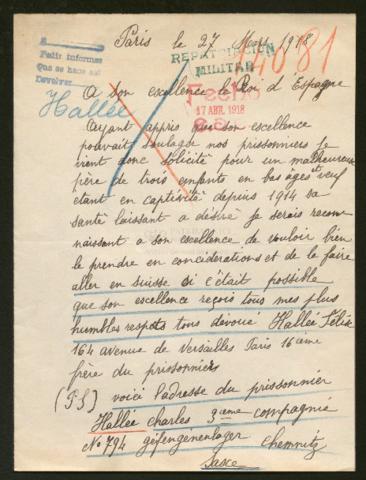 Paris le 27 Mars 1918
A
Pedir informes
Que se hace así
Devolver
REPATRIACION
MILITAR
24081
Fecho
17 ABR. 1918
Hallée
A son excellence le Roi d'Espagne
Ayant appris que son excellence
pouvait soulager nos prisonniers je
vient donc solicité pour un malheureux
père de trois enfants en bas âges et veuf
etant en captivité depuis 1914 sa
santé laissant a désiré je serais recon-
naissant a son excellence de vouloir bien
le prendre en considérations et de la faire
aller en suisse si c'était possible
que son excellence reçois tous mes plus
humbles respets tous dévoué Hallée Félix
164 avenue de Versailles Paris 16ième
frère du prisonniers
(P.S) voici l'adresse du prissonnier
Hallée charles 3eme compagnie
No 794 géfengénenlager chemnitz
Saxe